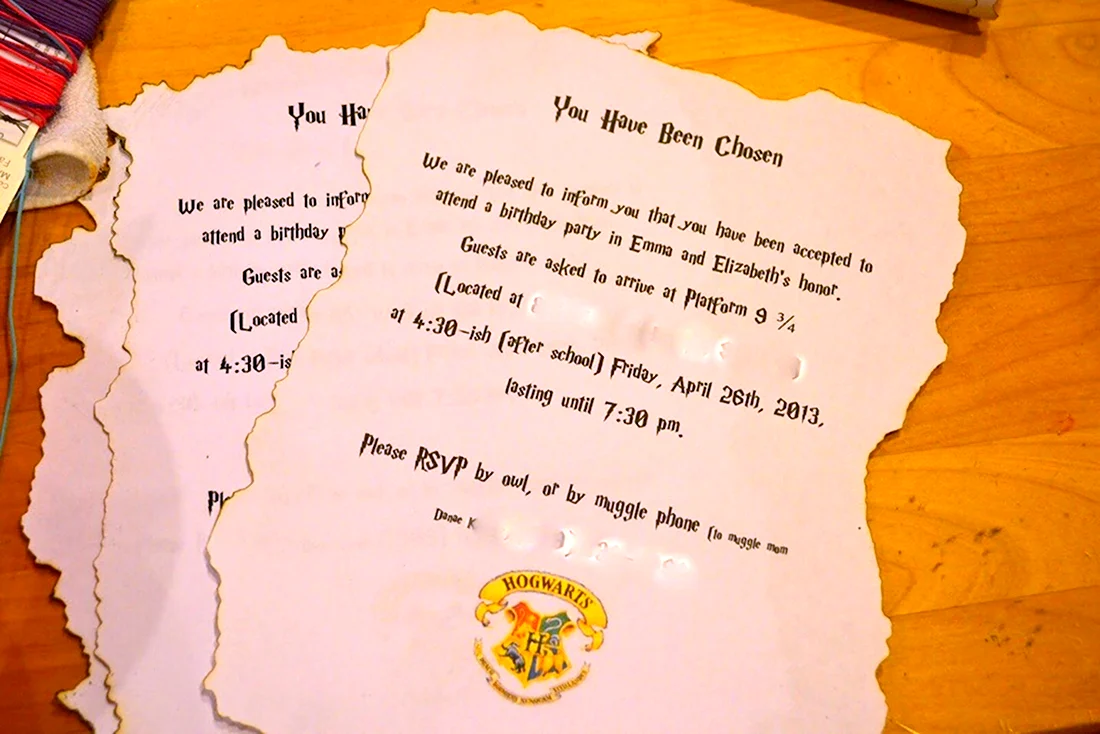 You Have Been Chosen
We are pleased to inform you that you have been accepted to
attend a birthday party in Emma and Elizabeth's honor.
Guests are asked to arrive at Platform 9 ¾
(Located at
)
at 4:30-ish (after school) Friday, April 26th, 2013,
lasting until 7:30 pm.
Please RSVP by owl, or by muggle phone (to muggle mom
Danae K
HOGWARTS
H
You Ha
We are pleased to inform
attend a birthday p
Guests are a
(Located
at 4:30-is
Pl